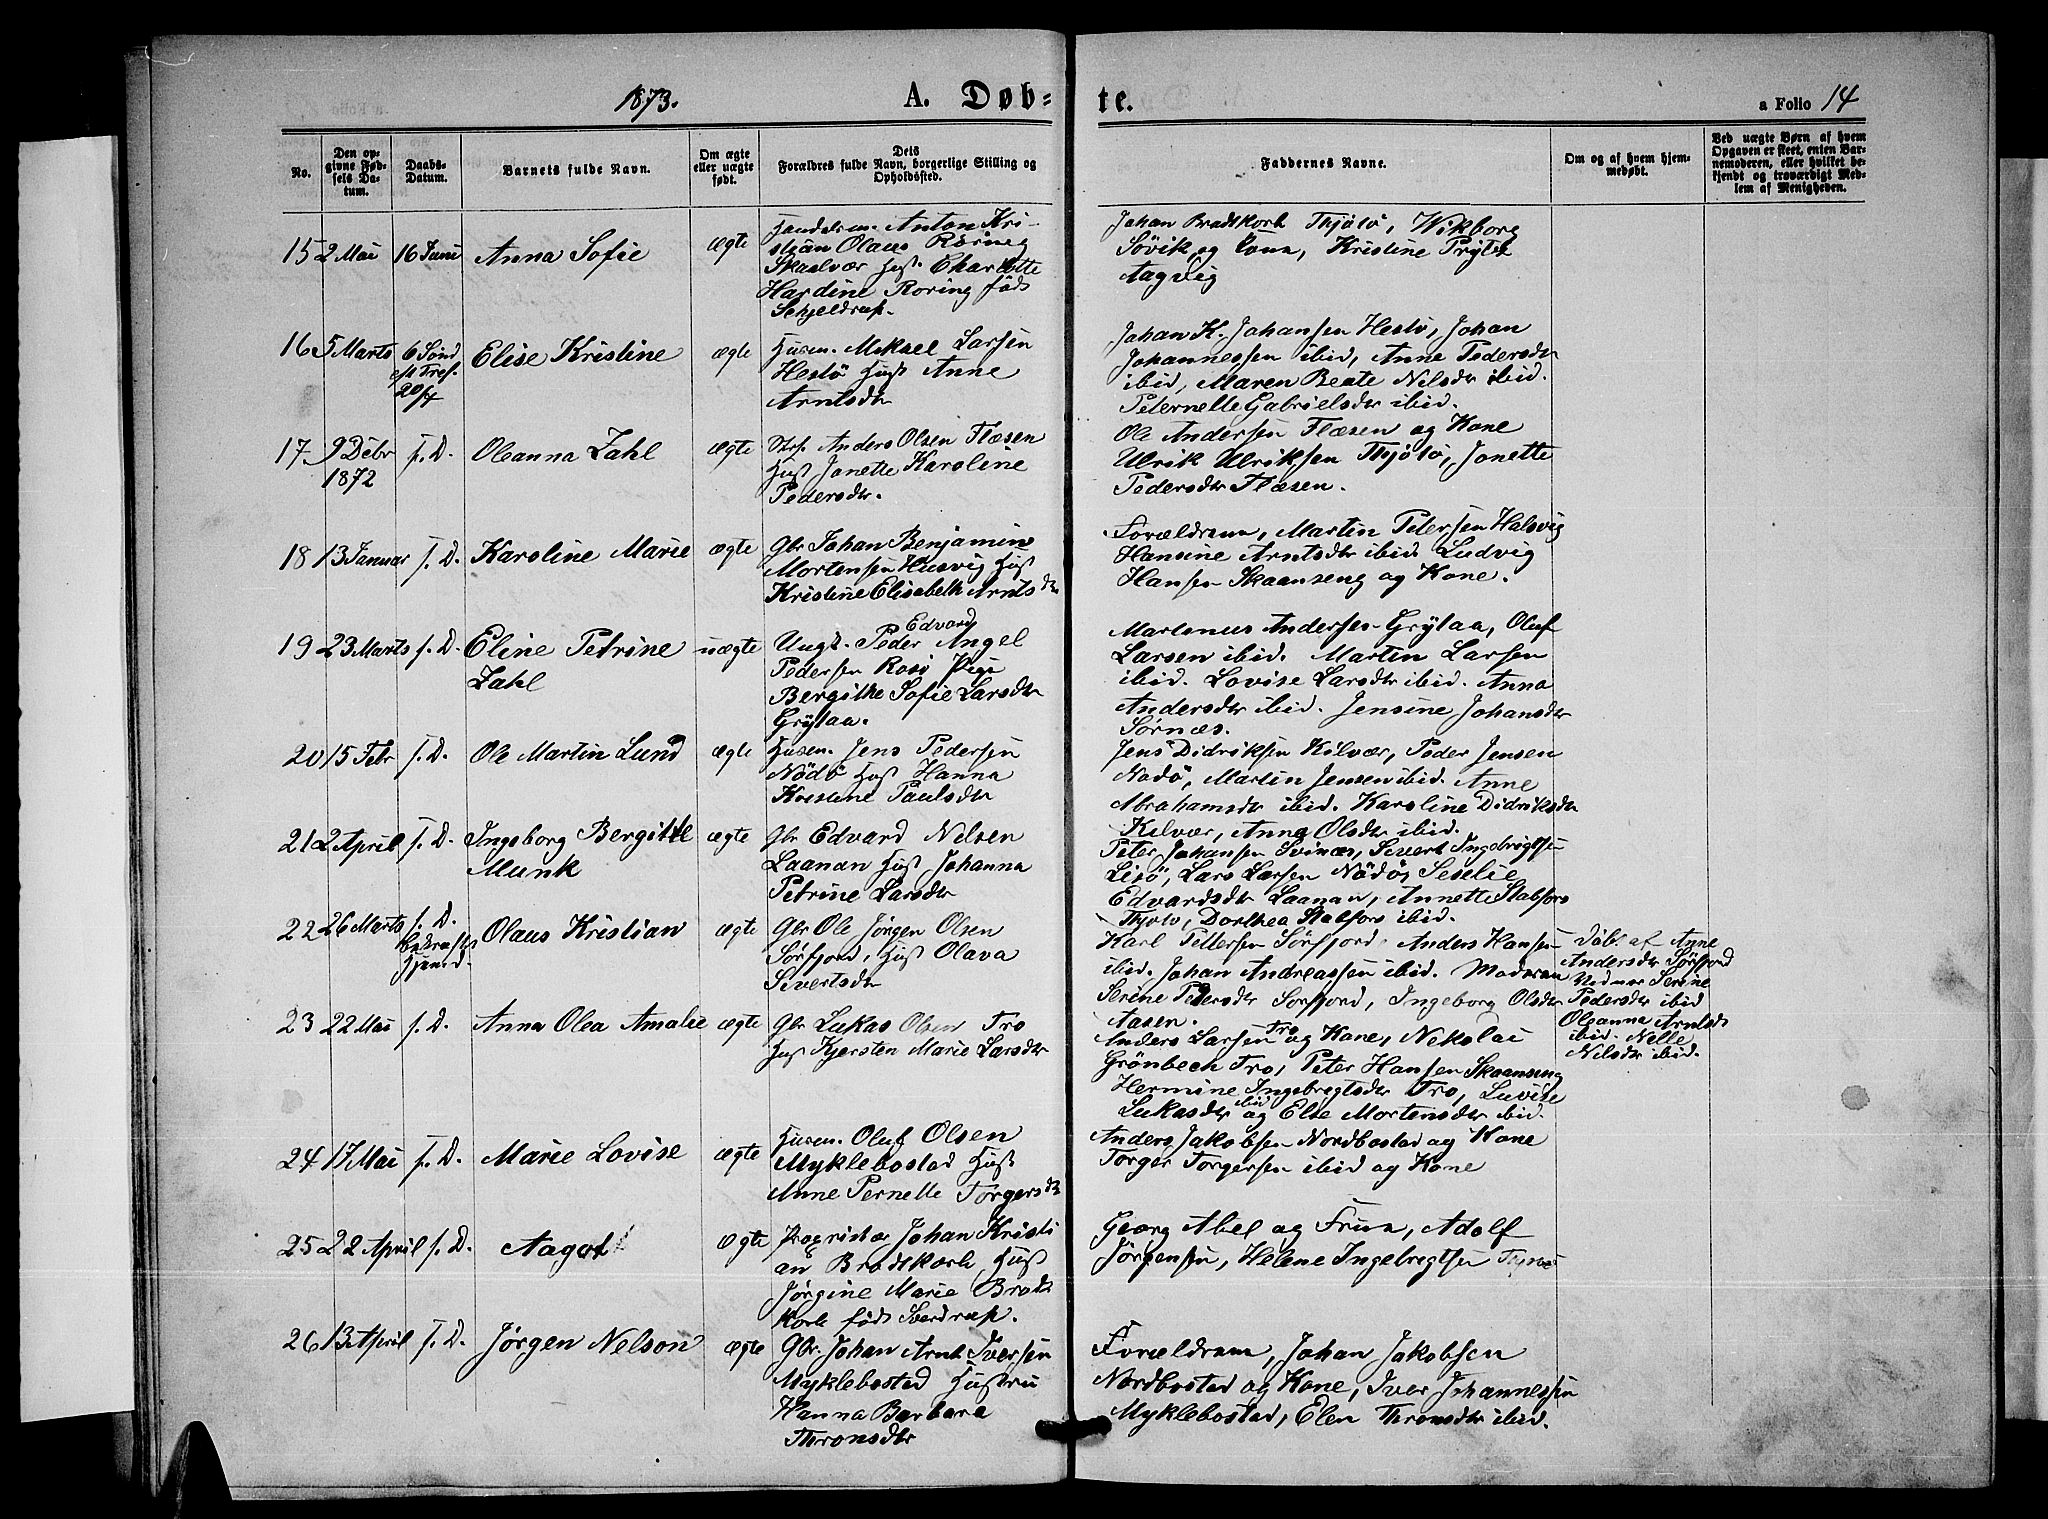 1873.
A. Døb-
te.
a Folio 14
No.
Den op-
givne Fød-
sels Da-
tum.
Daabs-
Datum.
Barnets fulde Navn.
Om ægte
eller uægte
født.
Dets
Forældres fulde Navn, borgerlige Stilling og
Opholdssted.
Faddernes Navne.
Om og af hvem hjem-
medøbt.
Ved uægte Børn af hvem
Opgaven er skeet, enten Bar-
nemoderen, eller hvilket be-
kjendt og troværdigt Med-
lem af Menigheden.
15 2 Mai 16 Juni Anna Sofie ægte
Handelsm. Anton Kri-
stian Olaus
Skaalvær Hust. Charlotte
Hardine Roring føds
Schjeldrup.
Johan Bradtkorb Thjøtø, Wikborg
Søvik og Kona, Kristine Prytz
16 5 Marts 6 Sønd Elise Kristine ægte
e/ Tref.
20/4
Husm. Mikael Larsen
Hestø Hust Anne
Arntsdtr
Johan K. Johansen Hestø, Johan
Johannessen ibid, Anne Pedersdtr
ibid, Maren Beate Nilsdtr ibid.
Peternelle Gabrielsdtr ibid.
17 9 Debr s. D. Oleanna Zahl ægte
1872
Strs. Anders Olsen Flæsen
Hust Janette Karoline
Pedersdtr.
Ole Andersen Flæsen og Kone
Ulrik Ulriksen Thjøtø, Jonette
Pedersdtr Flæsen.
18 13 Januar s. D. Karoline Marie ægte
Gbr Johan Benjamin
Mortensen Husvig Hust
Kristine Elisabeth Arntsdtr
Forældrene, Martin Petersen Halsvig
Hansine Arntsdtr ibid. Ludvig
Hansen Skaanseng og Kone.
19 23 Marts s. D. Eline Petrine uægte
Zahl
Edvard
Ungk. Peder Angel
Pedersen Rosø Pige
Bergithe Sofie Larsdtr
Grytaa.
Martinus Andersen Grytaa, Oluf
Larsen ibid. Martin Larsen
ibid. Lovise Larsdtr ibid. Anna
Andersdtr ibid. Jensine Johansdtr
Sørnæs.
20 15 Febr s. D. Ole Martin Lund ægte
Husm. Jens Pedersen
Nödö Hust Hanna
Kristine Paulsdtr
Jens Didriksen Kilvær, Peder Jensen
Nödö, Martin Jensen ibid. Anne
Abrahamsdtr ibid. Karoline Didriksdtr
Kilvær, Anna Olsdtr ibid.
21 2 April s. D. Ingeborg Bergitte ægte
Munk
Gbr Edvard Nilsen
Laanan Hust Johanna
Petrine Larsdtr
Peter Johansen Svinæs, Sivert Ingebrigtsen
Lisö, Lars Larsen Nödö, Seselie
Edvardsdtr Laanan, Annette Stabfors
Thjøtø, Dorthea Stabfors ibid.
22 26 Marts s. D. Olaus Kristian ægte
Bekræftet
Hjemd.
Gbr Ole Jørgen Olsen
Sørfjord, Hust Olava
Sivertsdtr
Karl Pettersen Sørfjord, Anders Hansen
ibid. Johan Andreassen ibid. Moderen
Serine Pedersdtr Sørfjord, Ingeborg Olsdtr
Aasen.
Døbt af Anne
Andersdtr Sørfjord
Vidner Serine
Pedersdtr ibid
Oleanna Arntsdtr
ibid. Nelle
Nilsdtr ibid.
23 22 Mai s. D. Anna Olea Amalie ægte
Gbr Lukas Olsen Tro
Hust Kjersten Marie Larsdtr
Anders Larsen Tro og Kone, Nikolai
Grönbech Tro, Peter Hansen Skaanseng
Hermine Ingebrigtsdtr Tro, Luvise
Lukasdtr ibid og Else Mortensdtr ibid.
24 17 Mai s. D. Marie Lovise ægte
Husm. Oluf Olsen
Myklebostad Hust
Anne Pernelle Torgersdtr
Anders Jakobsen Nordbostad og Kone
Torger Torgersen ibid og Kone
25 22 April s. D. Aagot ægte
Proprietær Johan Kristi
an Bradtkorb Hust
Jörgine Marie Bradt
korb føds Sverdrup.
Georg Abel og Frue, Adolf
Jörgensen, Helene Ingebrigtsen
26 13 April s. D. Jørgen Nelson ægte
Gbr. Johan Arnt Iversen
Myklebostad Hustru
Hanna Barbara
Thronsdtr
Forældrene, Johan Jakobsen
Nordbostad og Kone, Iver Johannessen
Myklebostad, Elen Thronsdtr ibid.